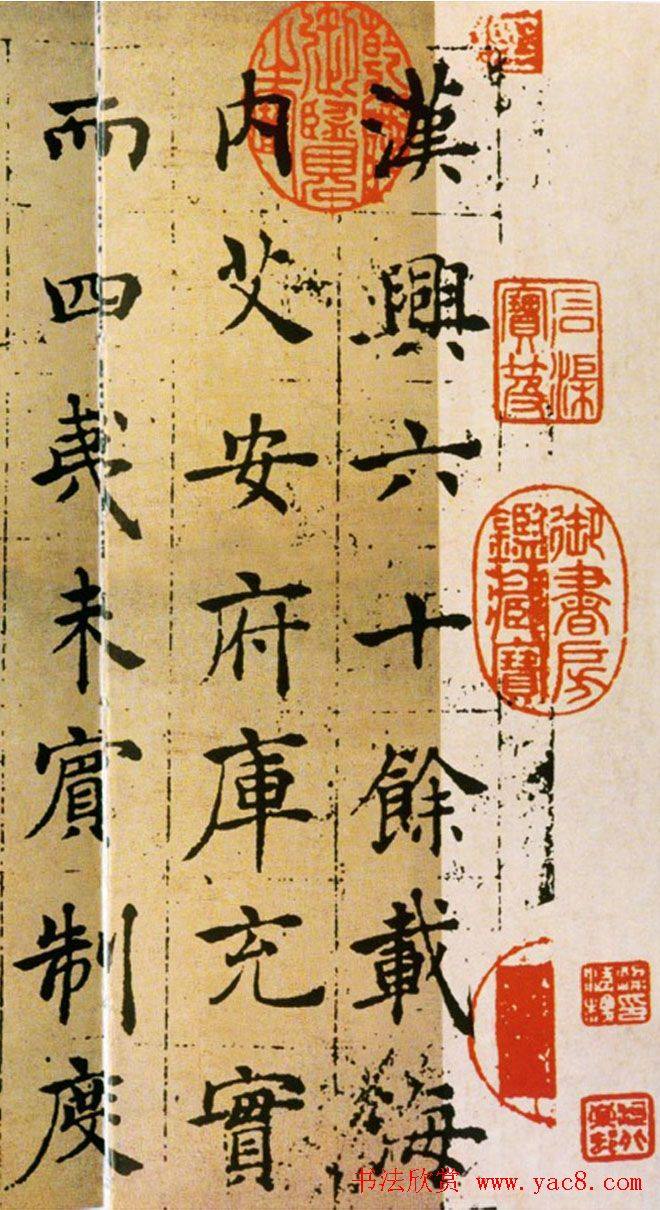 漢興六十餘載海
内艾安府庫充實
而四夷未賓制度
乾隆御覽之寶
石渠寶笈
御書房鑑藏寶
书法欣赏 www.yac8.com